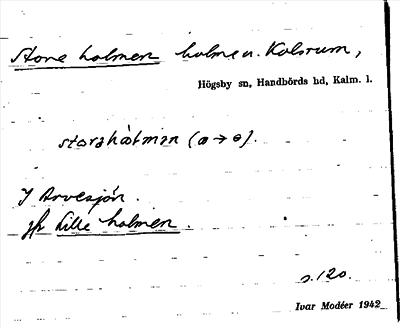 Store holmen holme u. Kolsrum,
Högsby sn, Handbörds hd, Kalm. l.
(a → e).
I Arvesjön.
jfr Lille holmen.
s. 120.
Ivar Modéer 1942